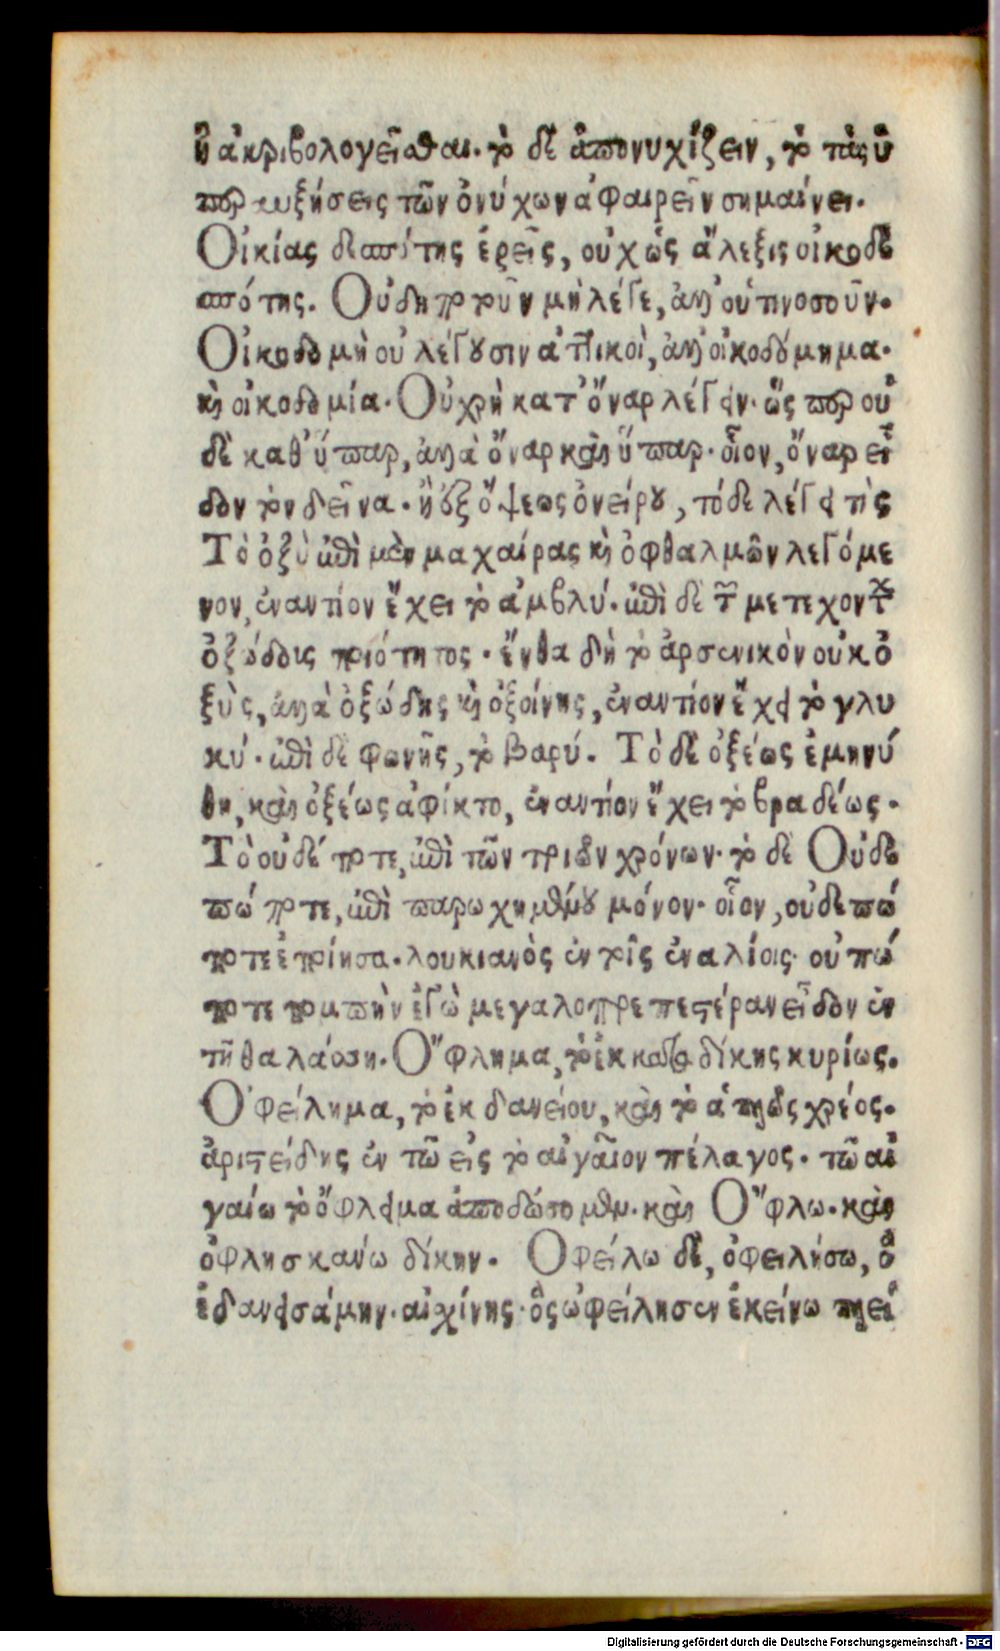 ἢ ἀκριβολογεῖσθαι. τὸ δὲ ἀπονυχίζειν, τὸ τὰς ὑ
περαυξήσεις τῶν ὀνύχων ἀφαιρεῖν σημαίνει.
Οἰκίας δεσπότης ἐρεῖς, οὐχ ὡς ἄλεξις οἰκοδε
σπότης. Οὐδηποτοῦν μὴ λέγε, ἀλλ' οὑτινοσοῦν.
Οἰκοδομὴ οὐ λέγουσιν ἀττικοὶ, ἀλλ' οἰκοδόμημα.
καὶ οἰκοδομία. Οὐ χρὴ κατ' ὄναρ λέγειν. ὥσπερ οὐ
δὲ καθ' ὕπαρ, ἀλλὰ ὄναρ καὶ ὕπαρ. οἷον, ὄναρ εἶ
δον τὸν δεῖνα. ἢ ἐξ ὄψεως ὀνείρου, τόδε λέγει τὶς
Τὸ ὀξὺ ἐπὶ μὲν μαχαίρας καὶ ὀφθαλμῶν λεγόμε
νον, ἐναντίον ἔχει τὸ ἀμβλύ. ἐπὶ δὲ τῶν μετεχόντων
ὀξώδους ποιότητος. ἔνθα δὴ τὸ ἀρσενικὸν οὐκ ὀ
ξὺς, ἀλλὰ ὀξώδης καὶ ὀξοίνης, ἐναντίον ἔχει τὸ γλυ
κύ. ἐπὶ δὲ φωνῆς, τὸ βαρύ. Τὸ δὲ ὀξέως ἐμηνύ
θη, καὶ ὀξέως ἀφίκτο, ἐναντίον ἔχει τὸ βραδέως.
Τὸ οὐδέποτε, ἐπὶ τῶν τριῶν χρόνων. τὸ δὲ Οὐδε
πώποτε, ἐπὶ παρωχημένου μόνον. οἷον, οὐδεπώ
ποτε ἐποίησα. λουκιανὸς ἐν τοῖς ἐναλίοις. οὐπώ
ποτε πομπὴν ἐγὼ μεγαλοπρεπεστέραν εἶδον ἐν
τῇ θαλάσσῃ. Ὄφλημα, τὸ ἐκ καταδίκης κυρίως.
Ὀφείλημα, τὸ ἐκ δανείου, καὶ τὸ ἁπλῶς χρέος.
ἀριστείδης ἐν τῶ εἰς τὸ αἰγαῖον πέλαγος. τῶ αἰ
γαίω τὸ ὄφλειμα ἀποδώσομεν. καὶ Ὄφλω. καὶ
ὀφλησκανώ δίκην. Ὀφείλω δὲ, ὀφειλήσω, ὃ
ἐδανεισάμην. αἰσχίνης. ὃς ὠφείλησεν ἐκείνω πλεί